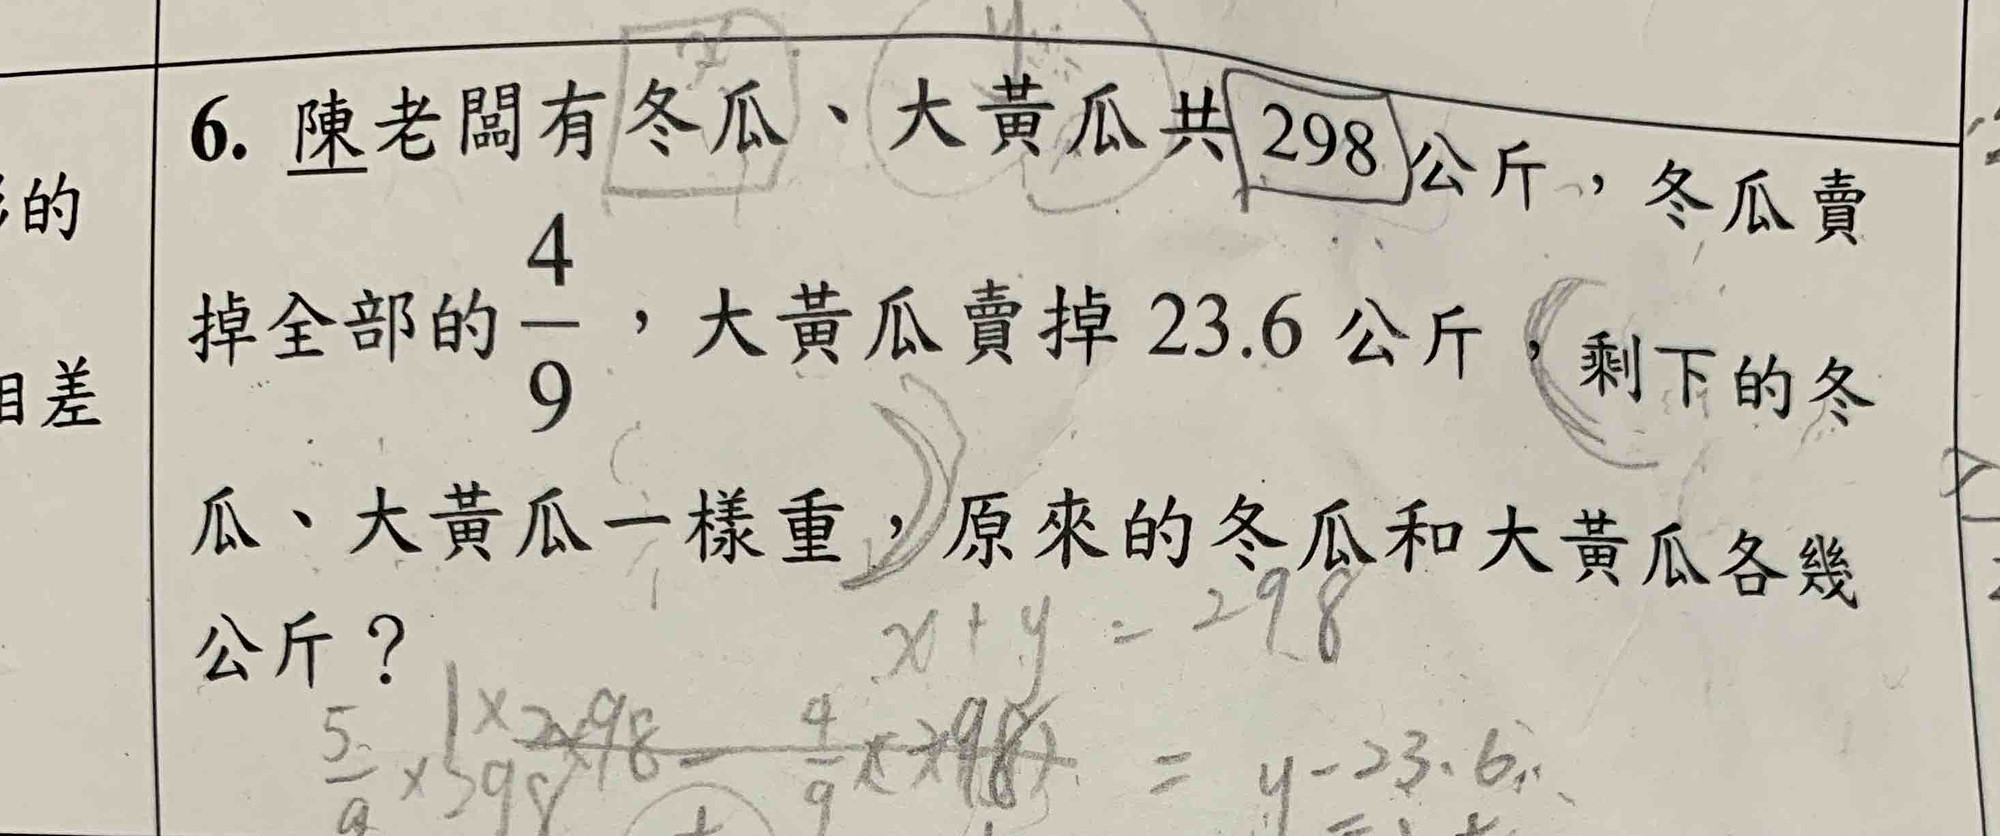 x y
6. 陳老闆有冬瓜、大黃瓜共 298 公斤，冬瓜賣
的
掉全部的 4/9，大黃瓜賣掉 23.6 公斤，剩下的冬
差
瓜、大黃瓜一樣重，原來的冬瓜和大黃瓜各幾
公斤？
x + y = 298
5/9 × 298 = y - 23.6